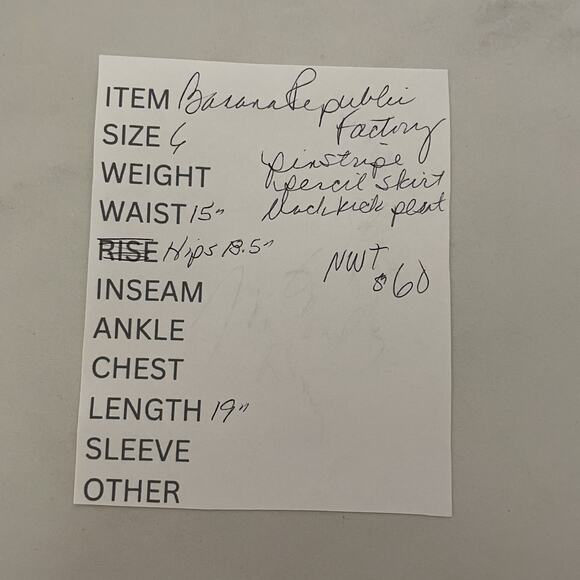 ITEM Banana Republic
Factory
SIZE 6
pinstripe
WEIGHT pencil skirt
WAIST 15" black kick pleat
RISE Hips 18.5"
NWT
$60
INSEAM
ANKLE
CHEST
LENGTH 19"
SLEEVE
OTHER